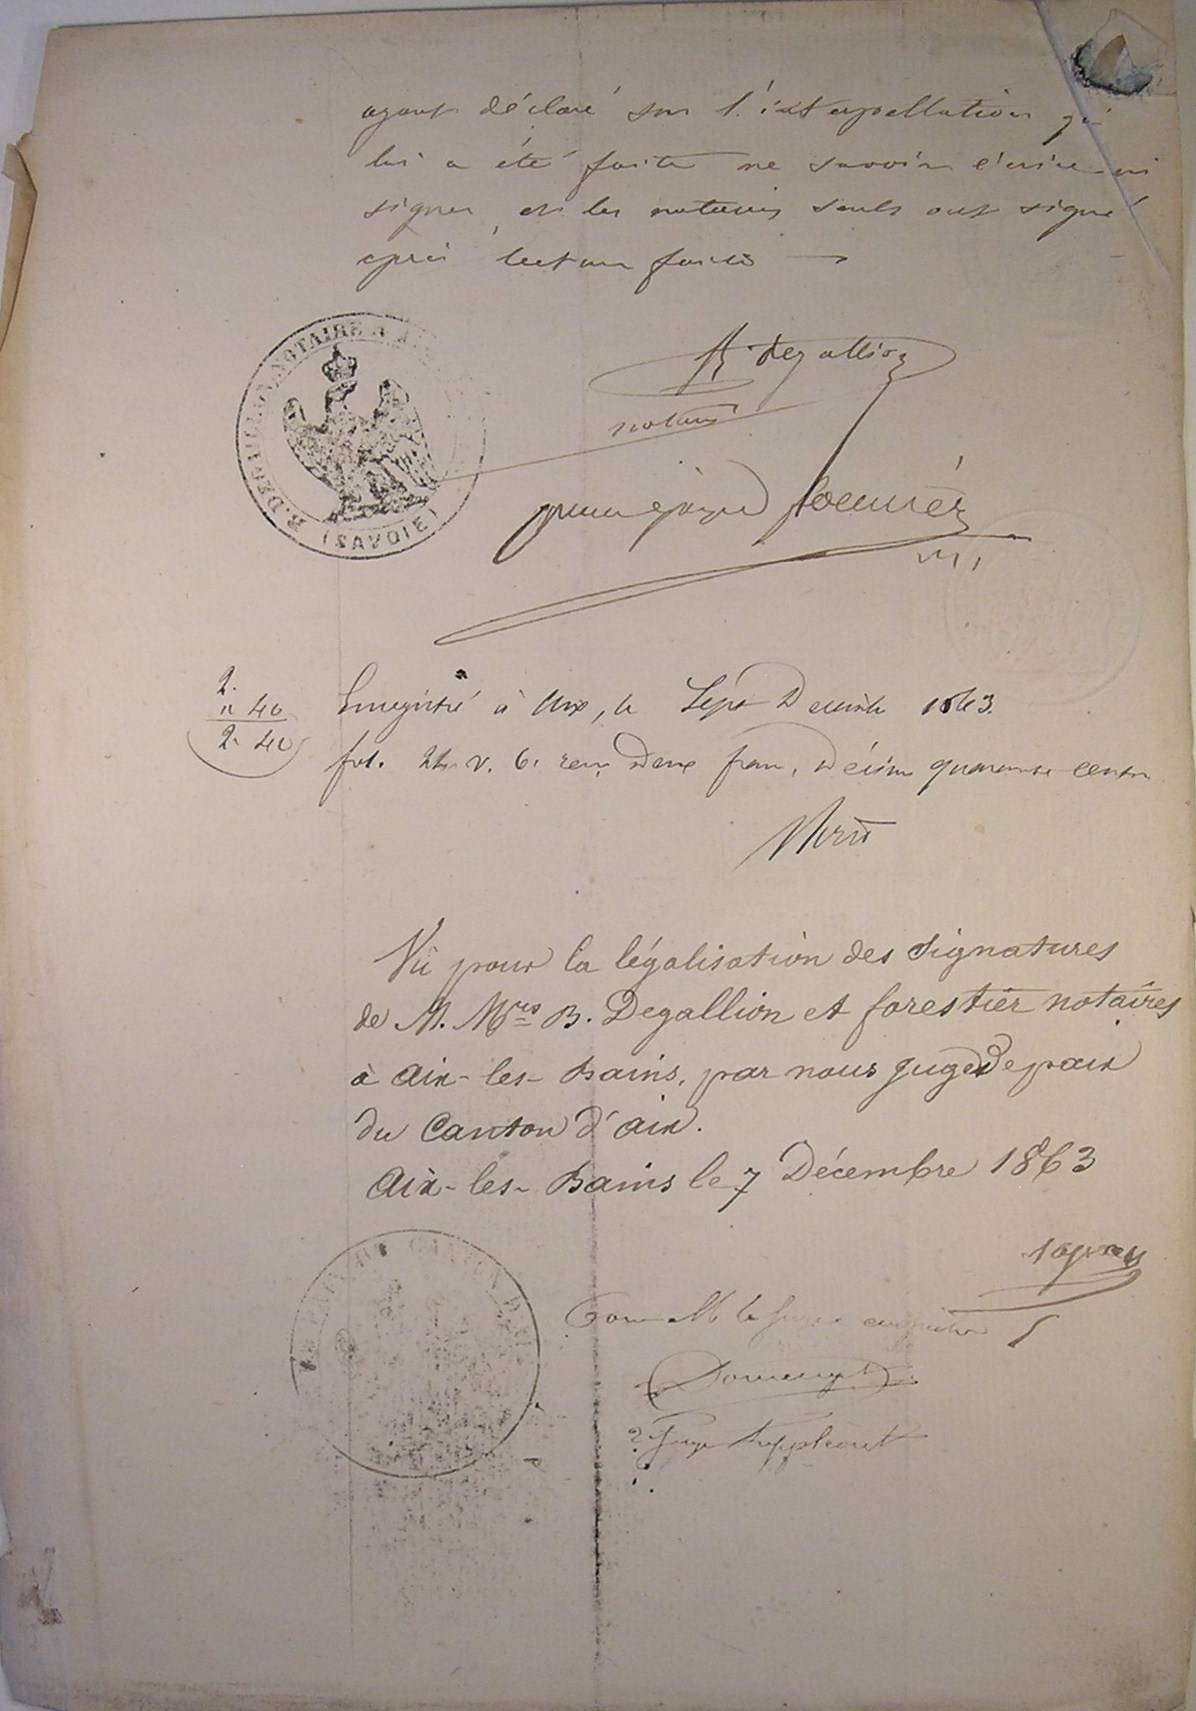 ayant déclaré sur l'interpellation qui
lui a été faite ne savoir écrire ni
signer, et les notaires seuls ont signé
après lecture faite
B. DEGALLION, NOTAIRE À
(SAVOIE)
B. Degallion
notaire
2.
" 40
2. 40
Enregistré à Aix, le Sept Décembre 1863.
fol. 24 v. c. 6. reçu Deux francs, Décime quarante centes
Vu pour la légalisation des signatures
de M. Mtres B. Degallion et forestier notaires
à Aix-les-Bains, par nous Juge de paix
du Canton d'Aix.
Aix-les-Bains le 7 Décembre 1863
DU CANTON D'
Pour M le Juge
2e Juge Suppléant